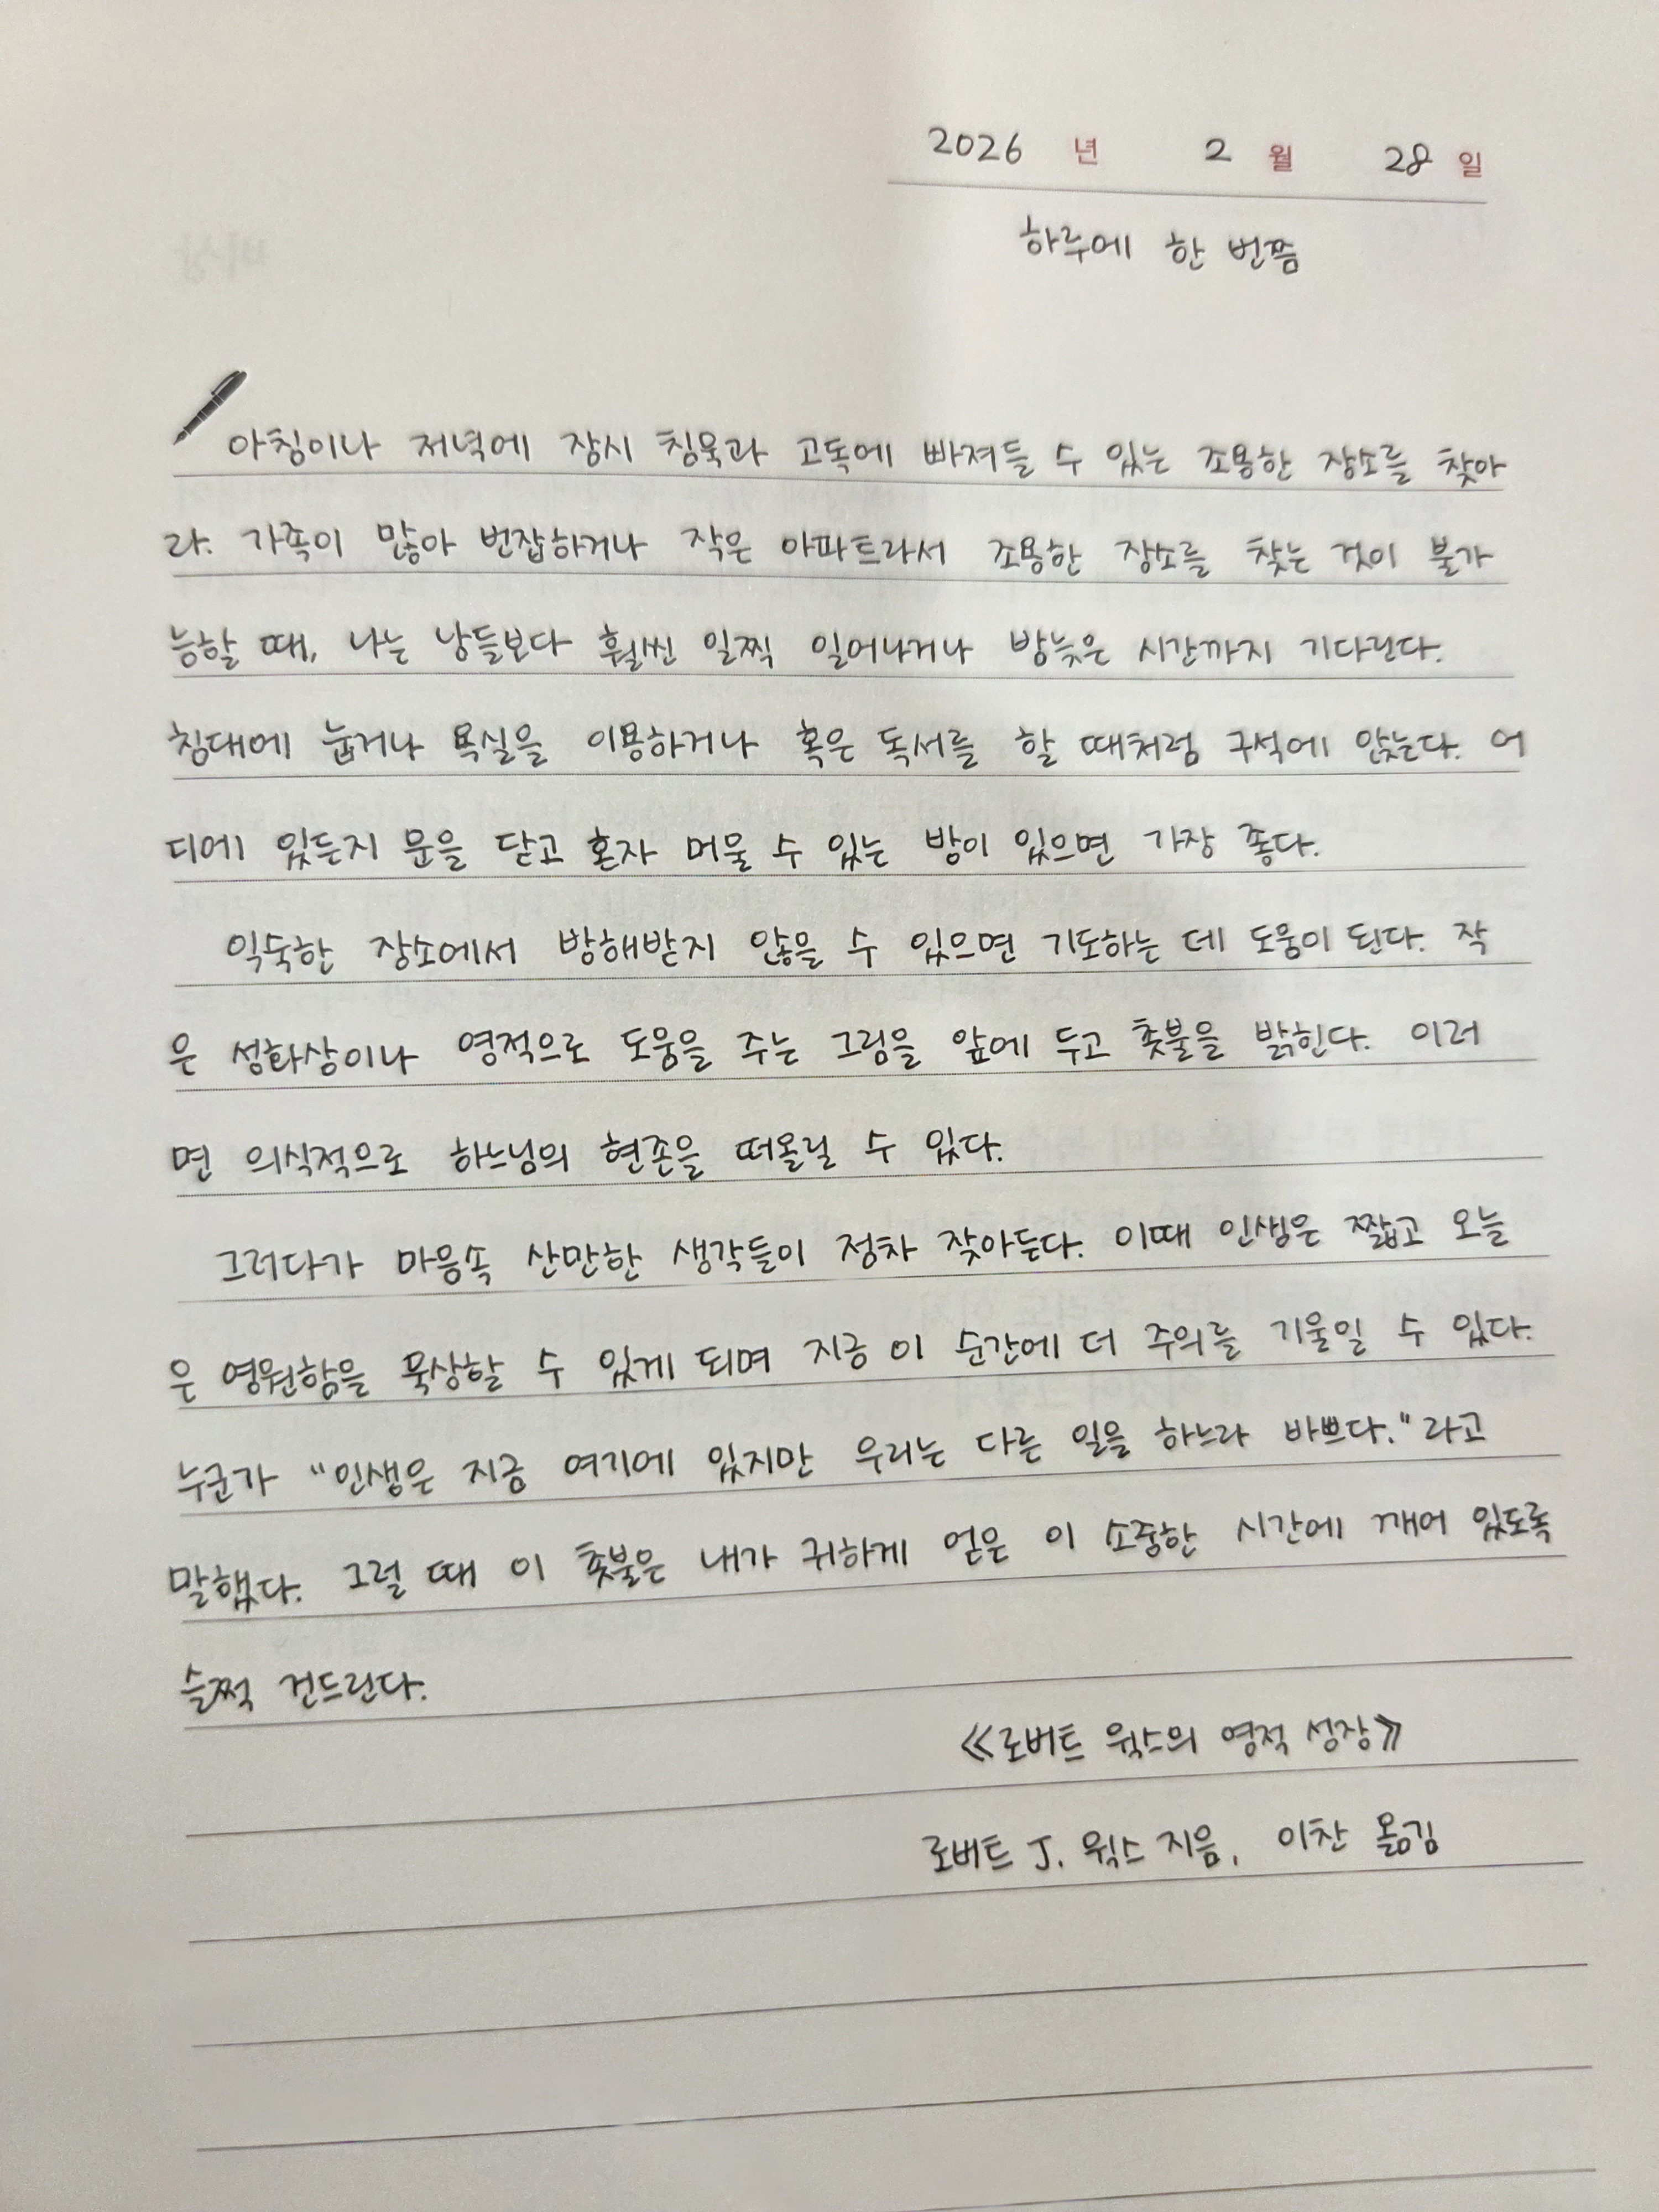 2026 년 2 월 28 일
하루에 한 번쯤
아침이나 저녁에 잠시 침묵과 고독에 빠져들 수 있는 조용한 장소를 찾아
라. 가족이 많아 번잡하거나 작은 아파트라서 조용한 장소를 찾는 것이 불가
능할 때, 나는 남들보다 훨씬 일찍 일어나거나 밤늦은 시간까지 기다린다.
침대에 눕거나 욕실을 이용하거나 혹은 독서를 할 때처럼 구석에 앉는다. 어
디에 있든지 문을 닫고 혼자 머물 수 있는 방이 있으면 가장 좋다.
익숙한 장소에서 방해받지 않을 수 있으면 기도하는 데 도움이 된다. 작
은 성화상이나 영적으로 도움을 주는 그림을 앞에 두고 촛불을 밝힌다. 이러
면 의식적으로 하느님의 현존을 떠올릴 수 있다.
그러다가 마음속 산만한 생각들이 점차 잦아든다. 이때 인생은 짧고 오늘
은 영원함을 묵상할 수 있게 되며 지금 이 순간에 더 주의를 기울일 수 있다.
누군가 "인생은 지금 여기에 있지만 우리는 다른 일을 하느라 바쁘다."라고
말했다. 그럴 때 이 촛불은 내가 귀하게 얻은 이 소중한 시간에 깨어 있도록
슬쩍 건드린다.
《로버트 윅스의 영적 성장》
로버트 J. 윅스 지음, 이찬 옮김